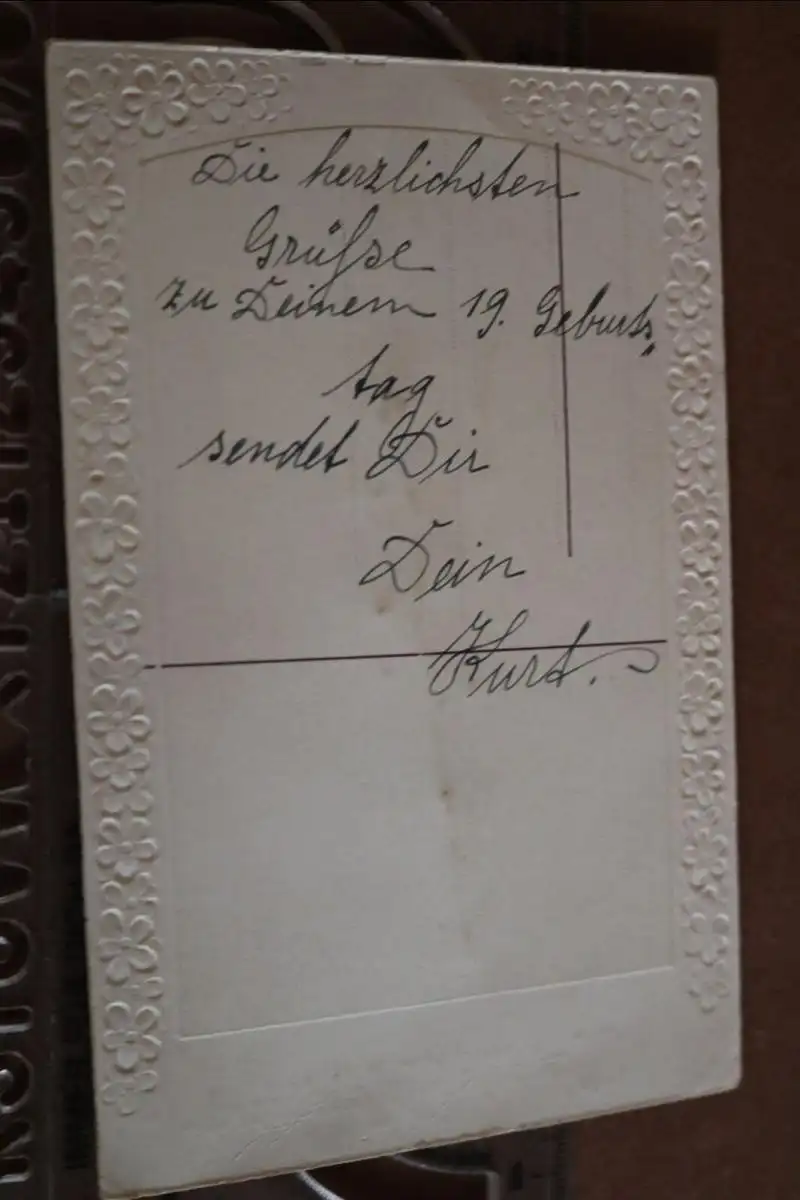 Die herzlichsten
Grüße
zu Deinem 19. Geburts„
tag
sendet Dir
Dein
Kurt.